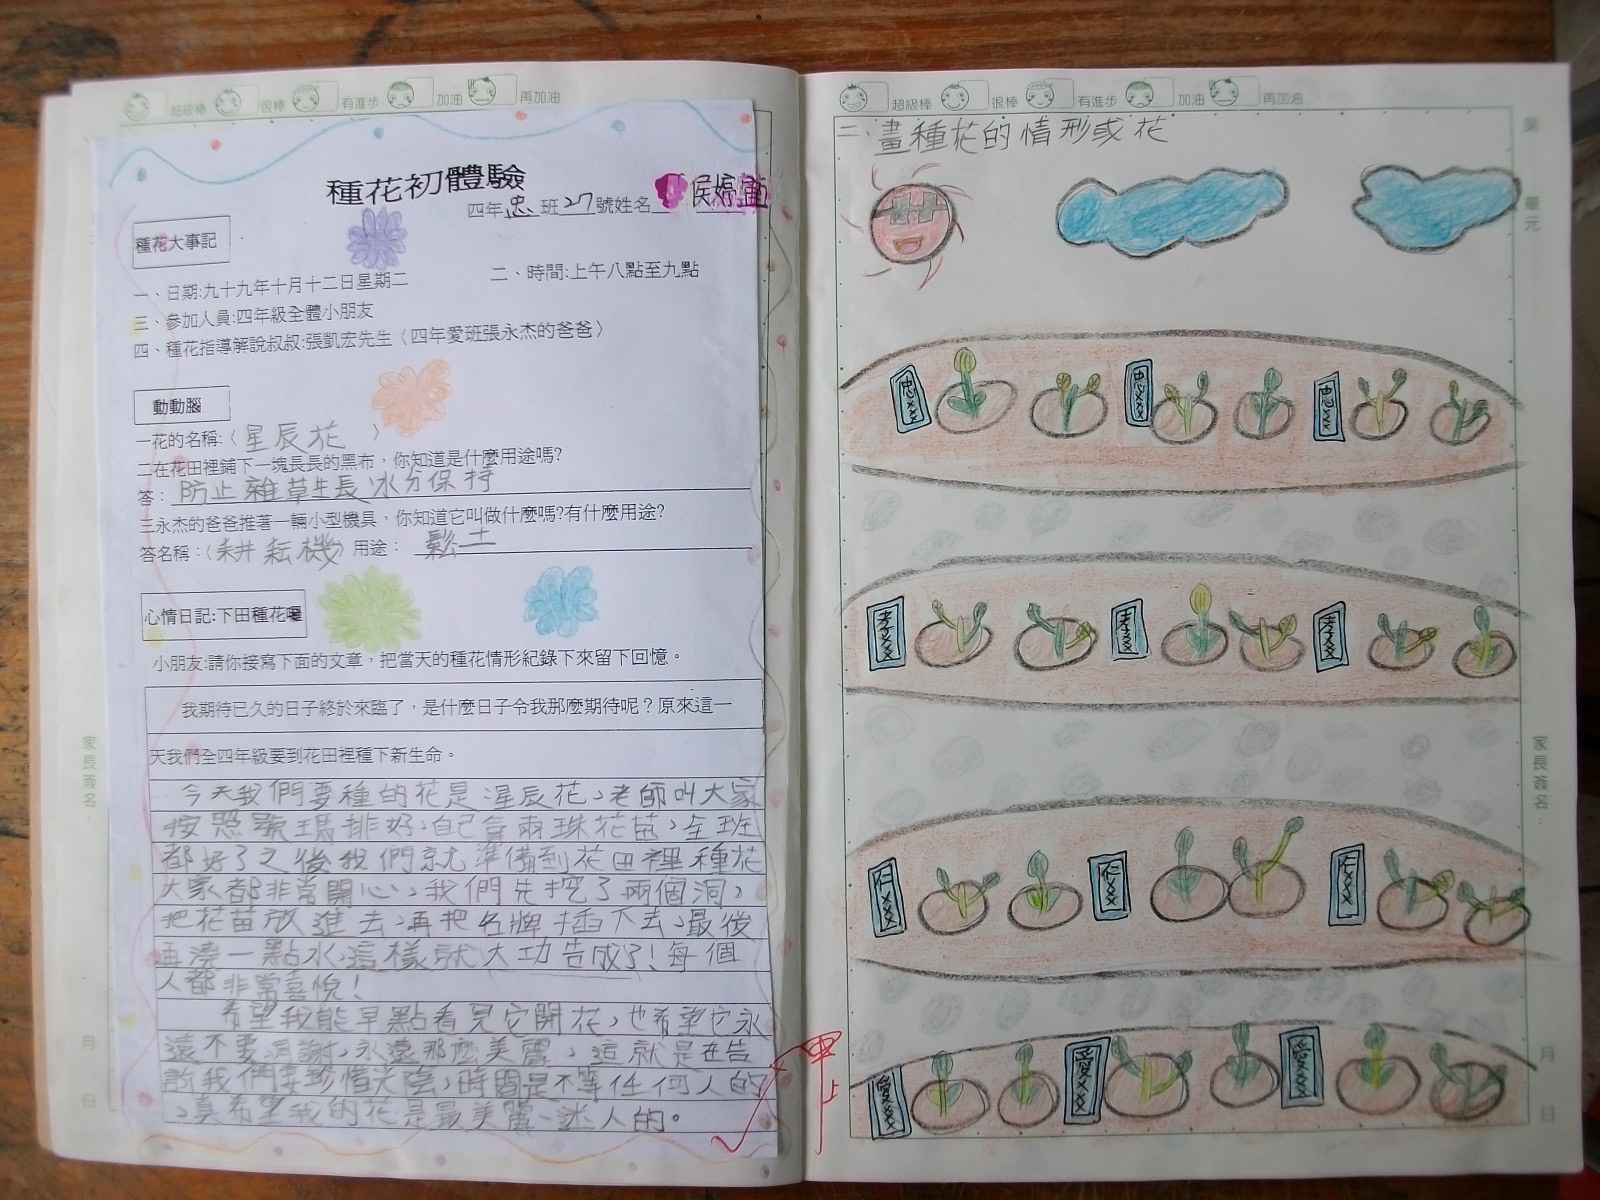 超級棒 很棒 有進步 加油 再加油
種花初體驗
四年忠班27號姓名 侯婷
種花大事記
一、日期:九十九年十月十二日星期二 二、時間:上午八點至九點
三、參加人員:四年級全體小朋友
四、種花指導解說叔叔:張凱宏先生〈四年愛班張永杰的爸爸〉
動動腦
一花的名稱:〈星辰花〉
二在花田裡鋪下一塊長長的黑布，你知道是什麼用途嗎?
答：防止雜草生長水分保持
三永杰的爸爸推著一輛小型機具，你知道它叫做什麼嗎?有什麼用途?
答名稱：〈耕耘機〉用途： 鬆土
心情日記:下田種花囉
小朋友:請你接寫下面的文章，把當天的種花情形紀錄下來留下回憶。
我期待已久的日子終於來臨了，是什麼日子令我那麼期待呢？原來這一
天我們全四年級要到花田裡種下新生命。
今天我們要種的花是星辰花，老師叫大家
按照號碼排好，自己拿兩珠花苗，全班
都好了之後我們就準備到花田裡種花
大家都非常開心，我們先挖了兩個洞，
把花苗放進去，再把名牌插下去，最後
再澆一點水，這樣就大功告成了！每個
人都非常喜悅！
希望我能早點看見它開花，也希望它永
遠不要凋謝，永遠那麼美麗，這就是在告
訴我們要珍惜光陰，時間是不等任何人的
，真希望我的花是最美麗、迷人的。
甲上
家長簽名：
月
日
超級棒 很棒 有進步 加油 再加油
第
單元
二、畫種花的情形或花
忠xxx
忠xxx
忠xxx
孝xxx
孝xxx
孝xxx
仁xxx
仁xxx
仁xxx
愛xxx
愛xxx
愛xxx
家長簽名：
月
日